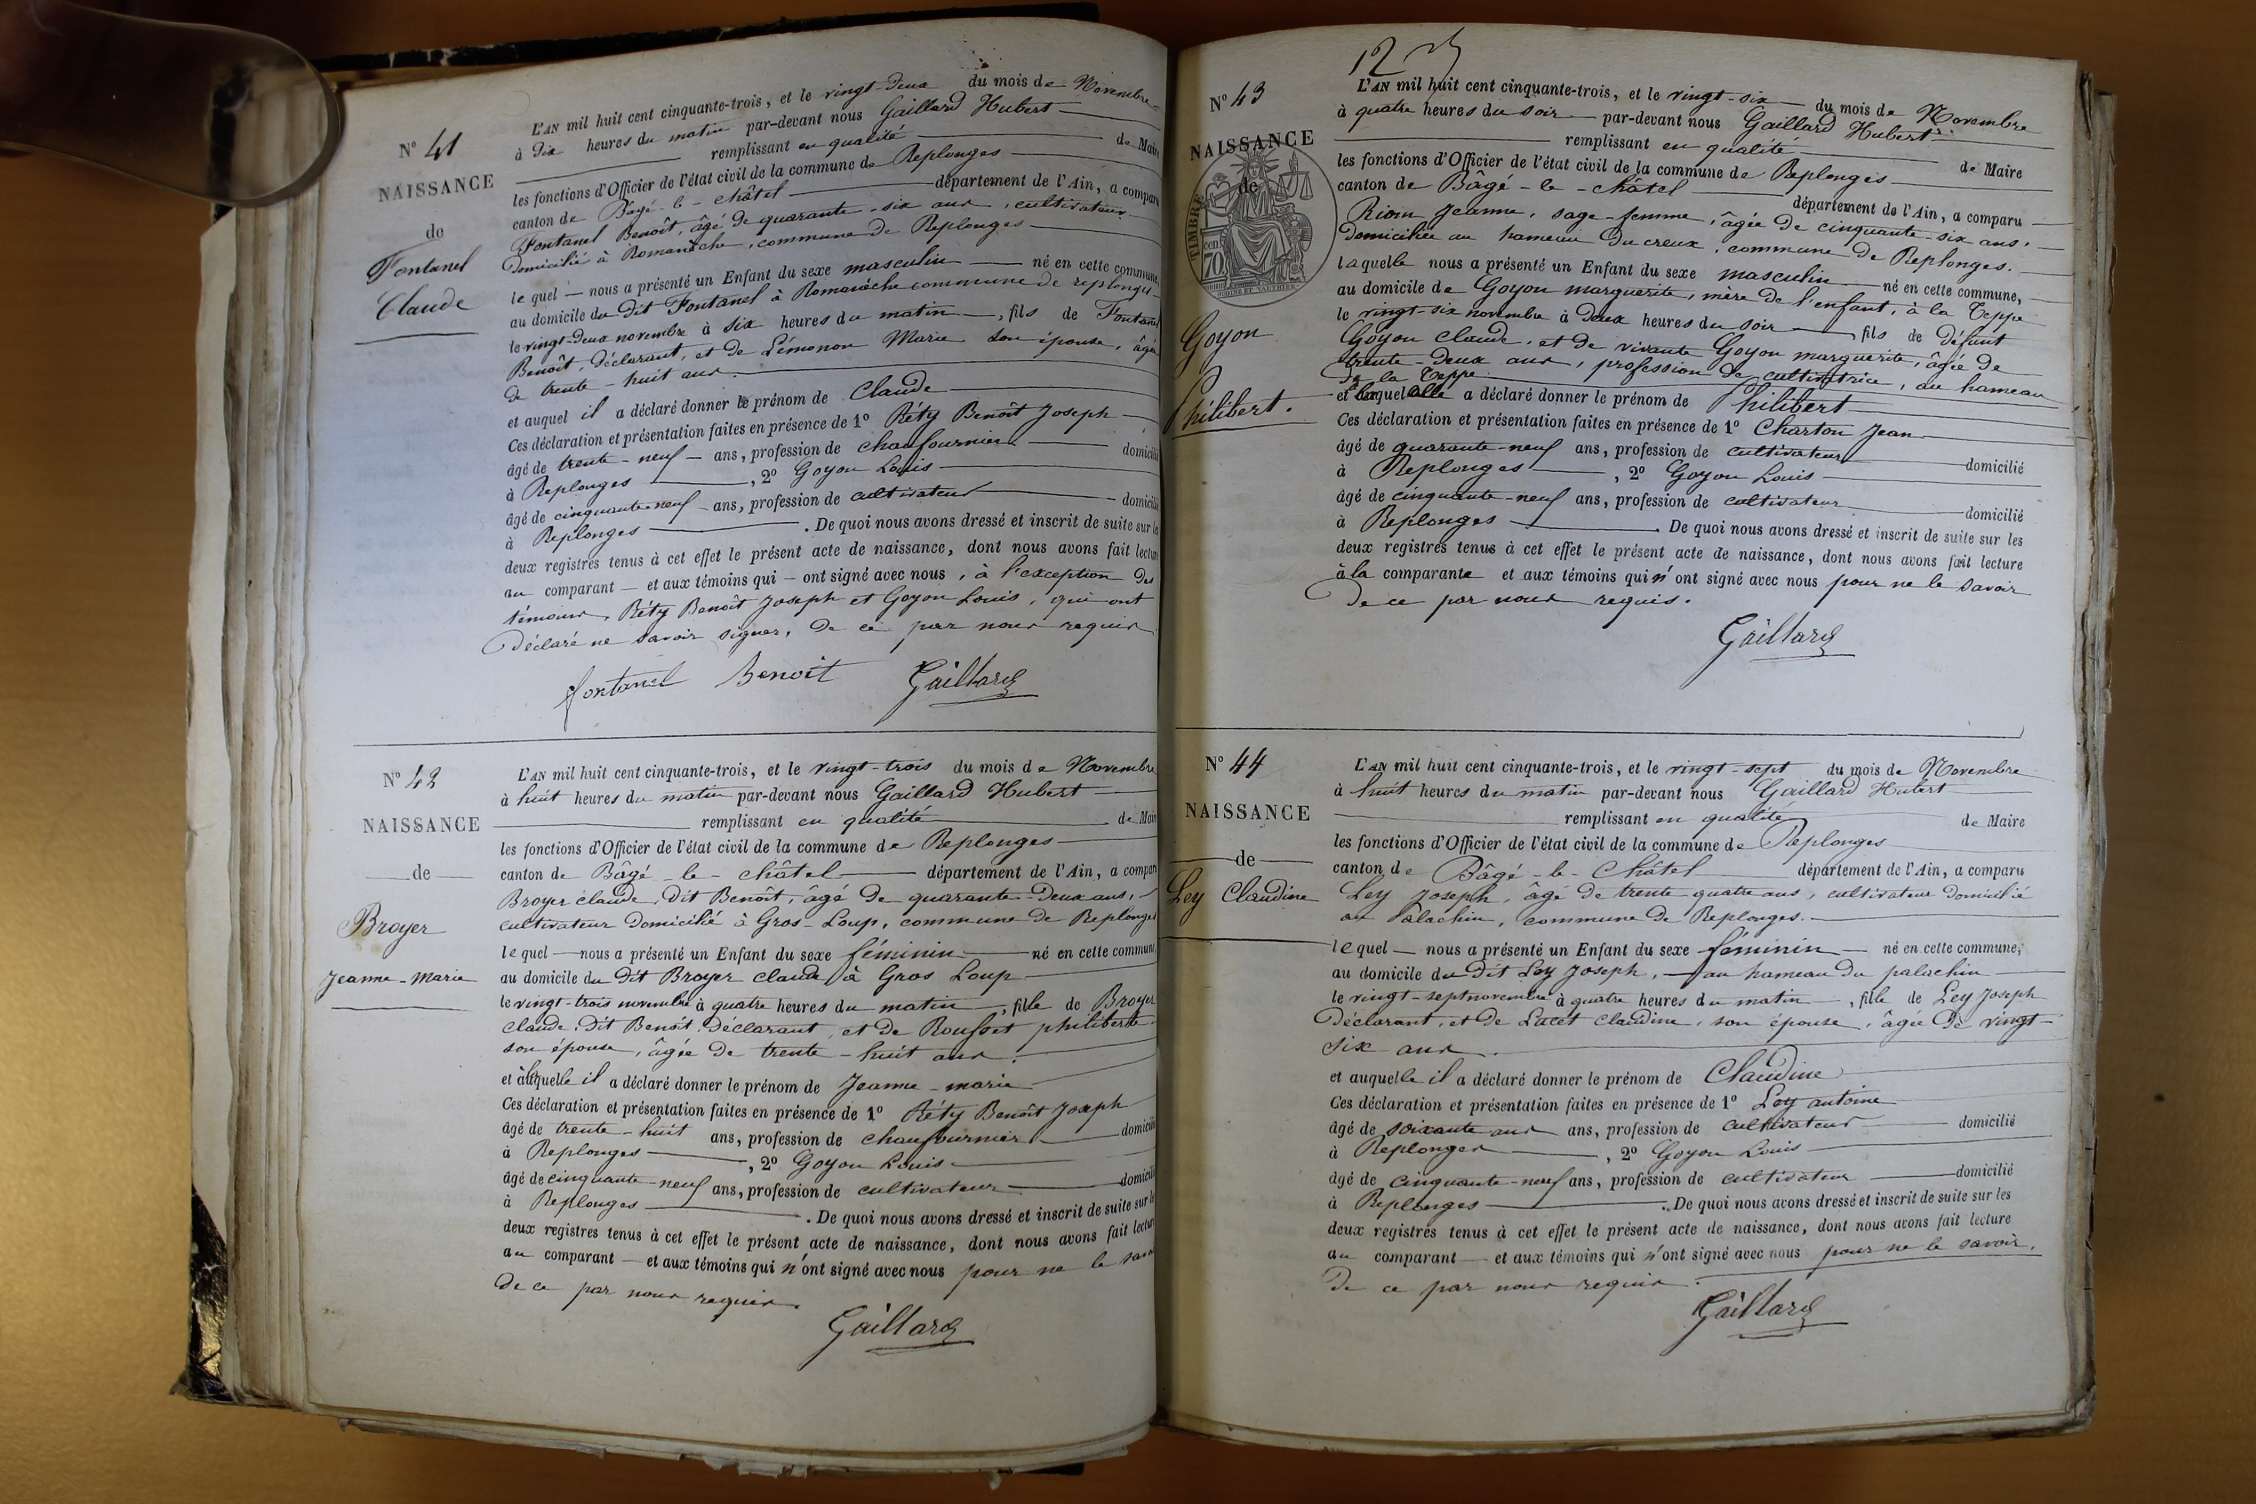 N° 41
NAISSANCE
de
Fontanel
Claude
L'AN mil huit cent cinquante-trois, et le vingt-deux du mois de Novembre
à dix heures du matin par-devant nous Gaillard Hubert
remplissant en qualité de Maire
les fonctions d'Officier de l'état civil de la commune de Replonges
canton de Bâgé-le-châtel département de l'Ain, a comparu
Fontanel Benoît, âgé de quarante-six ans, cultivateur
domicilié à Romanèche, commune de Replonges
le quel nous a présenté un Enfant du sexe masculin né en cette commune,
au domicile du dit Fontanel à Romanèche commune de replonges
le vingt-deux novembre à six heures du matin, fils de Fontanel
Benoît, déclarant, et de Lémonon Marie son épouse, âgée
de trente-huit ans.
et auquel il a déclaré donner le prénom de Claude
Ces déclaration et présentation faites en présence de 1° Réty Benoît Joseph
âgé de trente-neuf ans, profession de chaufournier domicilié
à Replonges, 2° Goyon Louis
âgé de cinquante-neuf ans, profession de cultivateur domicilié
à Replonges. De quoi nous avons dressé et inscrit de suite sur les
deux registres tenus à cet effet le présent acte de naissance, dont nous avons fait lecture
au comparant et aux témoins qui ont signé avec nous, à l'exception des
témoins, Réty Benoît Joseph et Goyon Louis, qui ont
déclaré ne savoir signer, de ce par nous requis
fontanel Benoit Gaillard
N° 42
NAISSANCE
de
Broyer
Jeanne-Marie
L'AN mil huit cent cinquante-trois, et le vingt-trois du mois de Novembre
à huit heures du matin par-devant nous Gaillard Hubert
remplissant en qualité de Maire
les fonctions d'Officier de l'état civil de la commune de Replonges
canton de Bâgé-le-châtel département de l'Ain, a comparu
Broyer claude, dit Benoît, âgé de quarante-deux ans,
cultivateur domicilié à Gros-Loup, commune de Replonges
le quel nous a présenté un Enfant du sexe féminin né en cette commune
au domicile du dit Broyer claude, à Gros Loup
le vingt-trois novembre à quatre heures du matin, fille de Broyer
claude, dit Benoît, déclarant, et de Roufort philiberte
son épouse, âgée de trente-huit ans.
et à laquelle il a déclaré donner le prénom de Jeanne-marie
Ces déclaration et présentation faites en présence de 1° Réty Benoît Joseph
âgé de trente-huit ans, profession de chaufournier domicilié
à Replonges, 2° Goyon Louis
âgé de cinquante-neuf ans, profession de cultivateur domicilié
à Replonges. De quoi nous avons dressé et inscrit de suite sur les
deux registres tenus à cet effet le présent acte de naissance, dont nous avons fait lecture
au comparant et aux témoins qui n'ont signé avec nous pour ne le savoir
de ce par nous requis.
Gaillard
12
N° 43
NAISSANCE
de
TIMBRE
70
Goyon
Philibert.
L'AN mil huit cent cinquante-trois, et le vingt-six du mois de Novembre
à quatre heures du soir par-devant nous Gaillard Hubert
remplissant en qualité de Maire
les fonctions d'Officier de l'état civil de la commune de Replonges
canton de Bâgé-le-châtel département de l'Ain, a comparu
Riom Jeanne, sage-femme, âgée de cinquante-six ans,
domiciliée au hameau du creux, commune de Replonges.
laquelle nous a présenté un Enfant du sexe masculin né en cette commune,
au domicile de Goyon marguerite, mère de l'enfant, à la Teppe
le vingt-six novembre à deux heures du soir fils de défunt
Goyon claude, et de vivante Goyon marguerite, âgée de
trente-deux ans, profession de cultivatrice, au hameau
de la Teppe
et auquel elle a déclaré donner le prénom de Philibert
Ces déclaration et présentation faites en présence de 1° Charton Jean
âgé de quarante-neuf ans, profession de cultivateur domicilié
à Replonges, 2° Goyon Louis
âgé de cinquante-neuf ans, profession de cultivateur domicilié
à Replonges. De quoi nous avons dressé et inscrit de suite sur les
deux registres tenus à cet effet le présent acte de naissance, dont nous avons fait lecture
à la comparante et aux témoins qui n'ont signé avec nous pour ne le savoir
de ce par nous requis.
Gaillard
N° 44
NAISSANCE
de
Ley Claudine
L'AN mil huit cent cinquante-trois, et le vingt-sept du mois de Novembre
à huit heures du matin par-devant nous Gaillard Hubert
remplissant en qualité de Maire
les fonctions d'Officier de l'état civil de la commune de Replonges
canton de Bâgé-le-Châtel département de l'Ain, a comparu
Ley Joseph, âgé de trente quatre ans, cultivateur domicilié
au Palachin, commune de Replonges.
le quel nous a présenté un Enfant du sexe féminin né en cette commune,
au domicile du dit Ley Joseph, au hameau du palachin
le vingt-sept novembre à quatre heures du matin, fille de Ley Joseph
déclarant, et de Lacet claudine, son épouse, âgée de vingt-
six ans.
et auquelle il a déclaré donner le prénom de Claudine
Ces déclaration et présentation faites en présence de 1° Ley antoine
âgé de soixante ans ans, profession de cultivateur domicilié
à Replonges, 2° Goyon Louis
âgé de cinquante-neuf ans, profession de cultivateur domicilié
à Replonges. De quoi nous avons dressé et inscrit de suite sur les
deux registres tenus à cet effet le présent acte de naissance, dont nous avons fait lecture
au comparant et aux témoins qui n'ont signé avec nous pour ne le savoir,
de ce par nous requis.
Gaillard